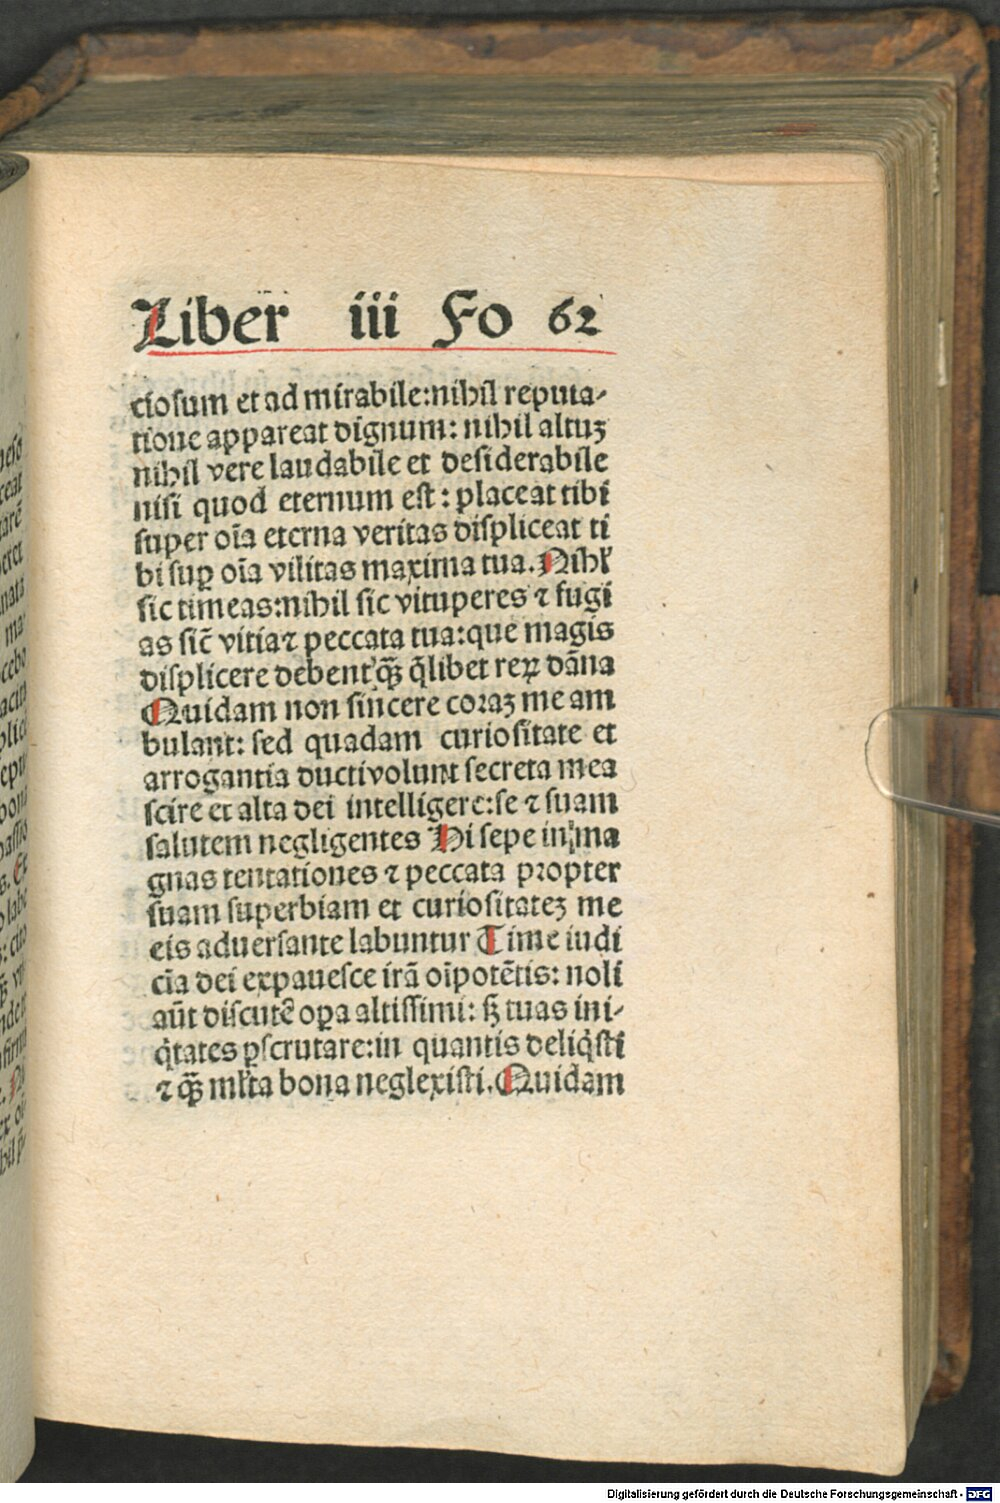 Liber iii Fo 62
ciosum et ad mirabile:nihil reputa-
tione appareat dignum: nihil altuʒ
nihil vere laudabile et desiderabile
nisi quod eternum est: placeat tibi
super oīa eterna veritas displiceat ti
bi suꝑ oīa vilitas maxima tua. Nihl̓
sic timeas:nihil sic vituperes ⁊ fugi
as sic̄ vitia ⁊ peccata tua:que magis
displicere debent qꝫ̄ q̄libet reꝝ dāna
Quidam non sincere coraʒ me am
bulant: sed quadam curiositate et
arrogantia ducti volunt secreta mea
scire et alta dei intelligere:se ⁊ suam
salutem negligentes Hi sepe in ma
gnas tentationes ⁊ peccata propter
suam superbiam et curiositateʒ me
eis aduersante labuntur Time iudi
cīa dei expauesce irā oīpotētis: noli
aūt discutē oꝑa altissimi: sʒ tuas ini-
q̇tates ꝑscrutare:in quantis deliq̇sti
⁊ qꝫ̄ ml̓ta bona neglexisti. Quidam
Digitalisierung gefördert durch die Deutsche Forschungsgemeinschaft - DFG